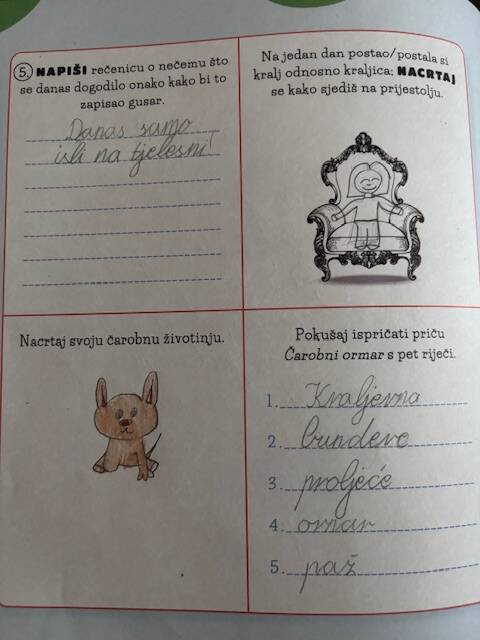 5. NAPIŠI rečenicu o nečemu što
se danas dogodilo onako kako bi to
zapisao gusar.
Danas samo
isli na tjelesni!
Na jedan dan postao/postala si
kralj odnosno kraljica; NACRTAJ
se kako sjediš na prijestolju.
Nacrtaj svoju čarobnu životinju.
Pokušaj ispričati priču
Čarobni ormar s pet riječi.
1. Kraljevna
2. bundeve
3. proljeće
4. ormar
5. paž